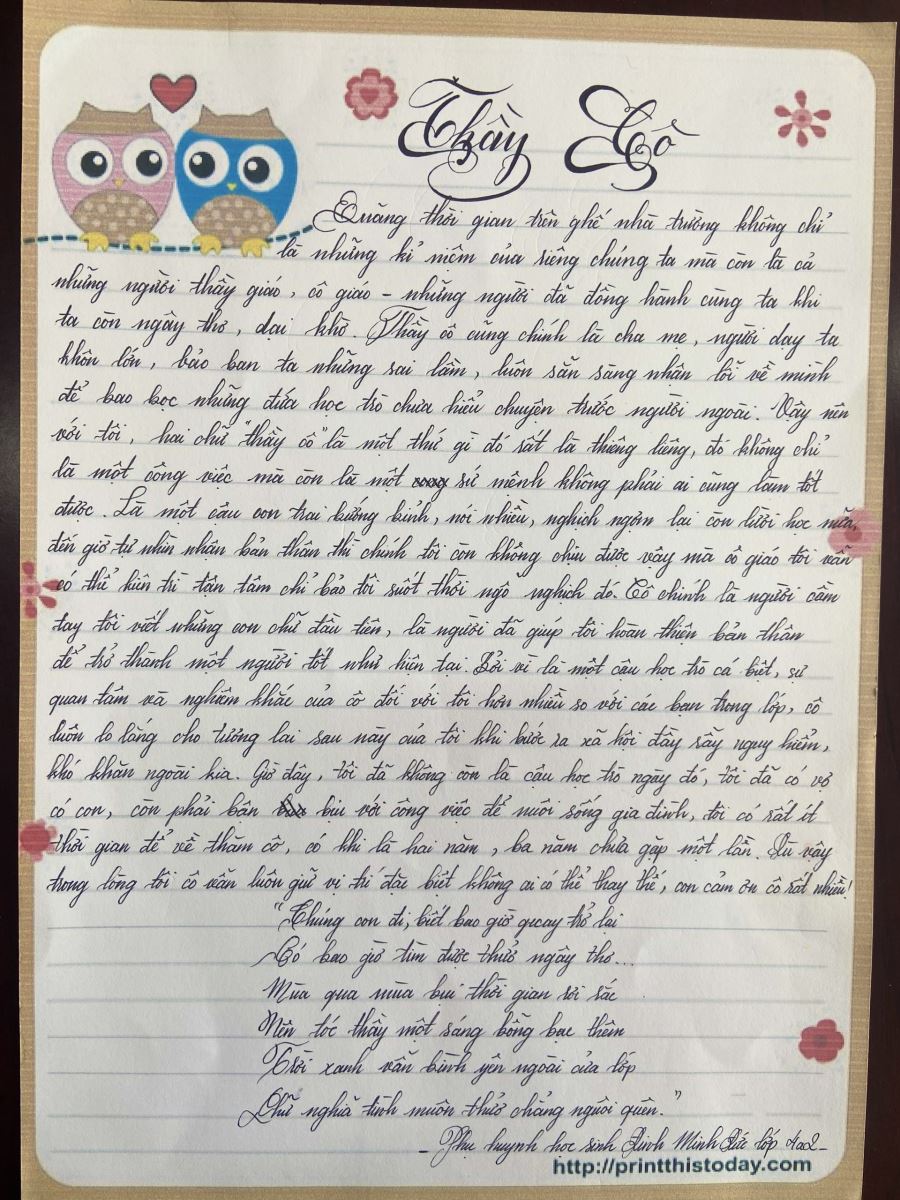 Thầy Cô
Quãng thời gian trên ghế nhà trường không chỉ
là những kỉ niệm của riêng chúng ta mà còn là cả
những người thầy giáo, cô giáo - những người đã đồng hành cùng ta khi
ta còn ngây thơ, dại khờ. Thầy cô cũng chính là cha mẹ, người dạy ta
khôn lớn, bảo ban ta những sai lầm, luôn sẵn sàng nhận lỗi về mình
để bao bọc những đứa học trò chưa hiểu chuyện trước người ngoài. Vậy nên
với tôi, hai chữ "thầy cô" là một thứ gì đó rất là thiêng liêng, đó không chỉ
là một công việc mà còn là một sứ mệnh không phải ai cũng làm tốt
được. Là một cậu con trai bướng bỉnh, nói nhiều, nghịch ngợm lại còn lười học nữa,
đến giờ tự nhìn nhận bản thân thì chính tôi còn không chịu được vậy mà cô giáo tôi vẫn
có thể kiên trì tận tâm chỉ bảo tôi suốt thời ngộ nghịch đó. Cô chính là người cầm
tay tôi viết những con chữ đầu tiên, là người đã giúp tôi hoàn thiện bản thân
để trở thành một người tốt như hiện tại. Bởi vì là một cậu học trò cá biệt, sự
quan tâm và nghiêm khắc của cô đối với tôi hơn nhiều so với các bạn trong lớp, cô
luôn lo lắng cho tương lai sau này của tôi khi bước ra xã hội đầy rẫy nguy hiểm,
khó khăn ngoài kia. Giờ đây, tôi đã không còn là cậu học trò ngày đó, tôi đã có vợ
có con, còn phải bận bịu với công việc để nuôi sống gia đình, tôi có rất ít
thời gian để về thăm cô, có khi là hai năm, ba năm chưa gặp một lần. Dù vậy
trong lòng tôi cô vẫn luôn giữ vị trí đặc biệt không ai có thể thay thế, con cảm ơn cô rất nhiều!
"Chúng con đi, biết bao giờ quay trở lại
Có bao giờ tìm được thưở ngây thơ...
Mùa qua mùa bụi thời gian rơi rắc
Nên tóc thầy một sáng bỗng bạc thêm
Trời xanh vẫn bình yên ngoài cửa lớp
Chữ nghĩa tình muôn thưở chẳng nguôi quên."
- Phụ huynh học sinh Đinh Minh Đức lớp 4a2 -
http://printthistoday.com